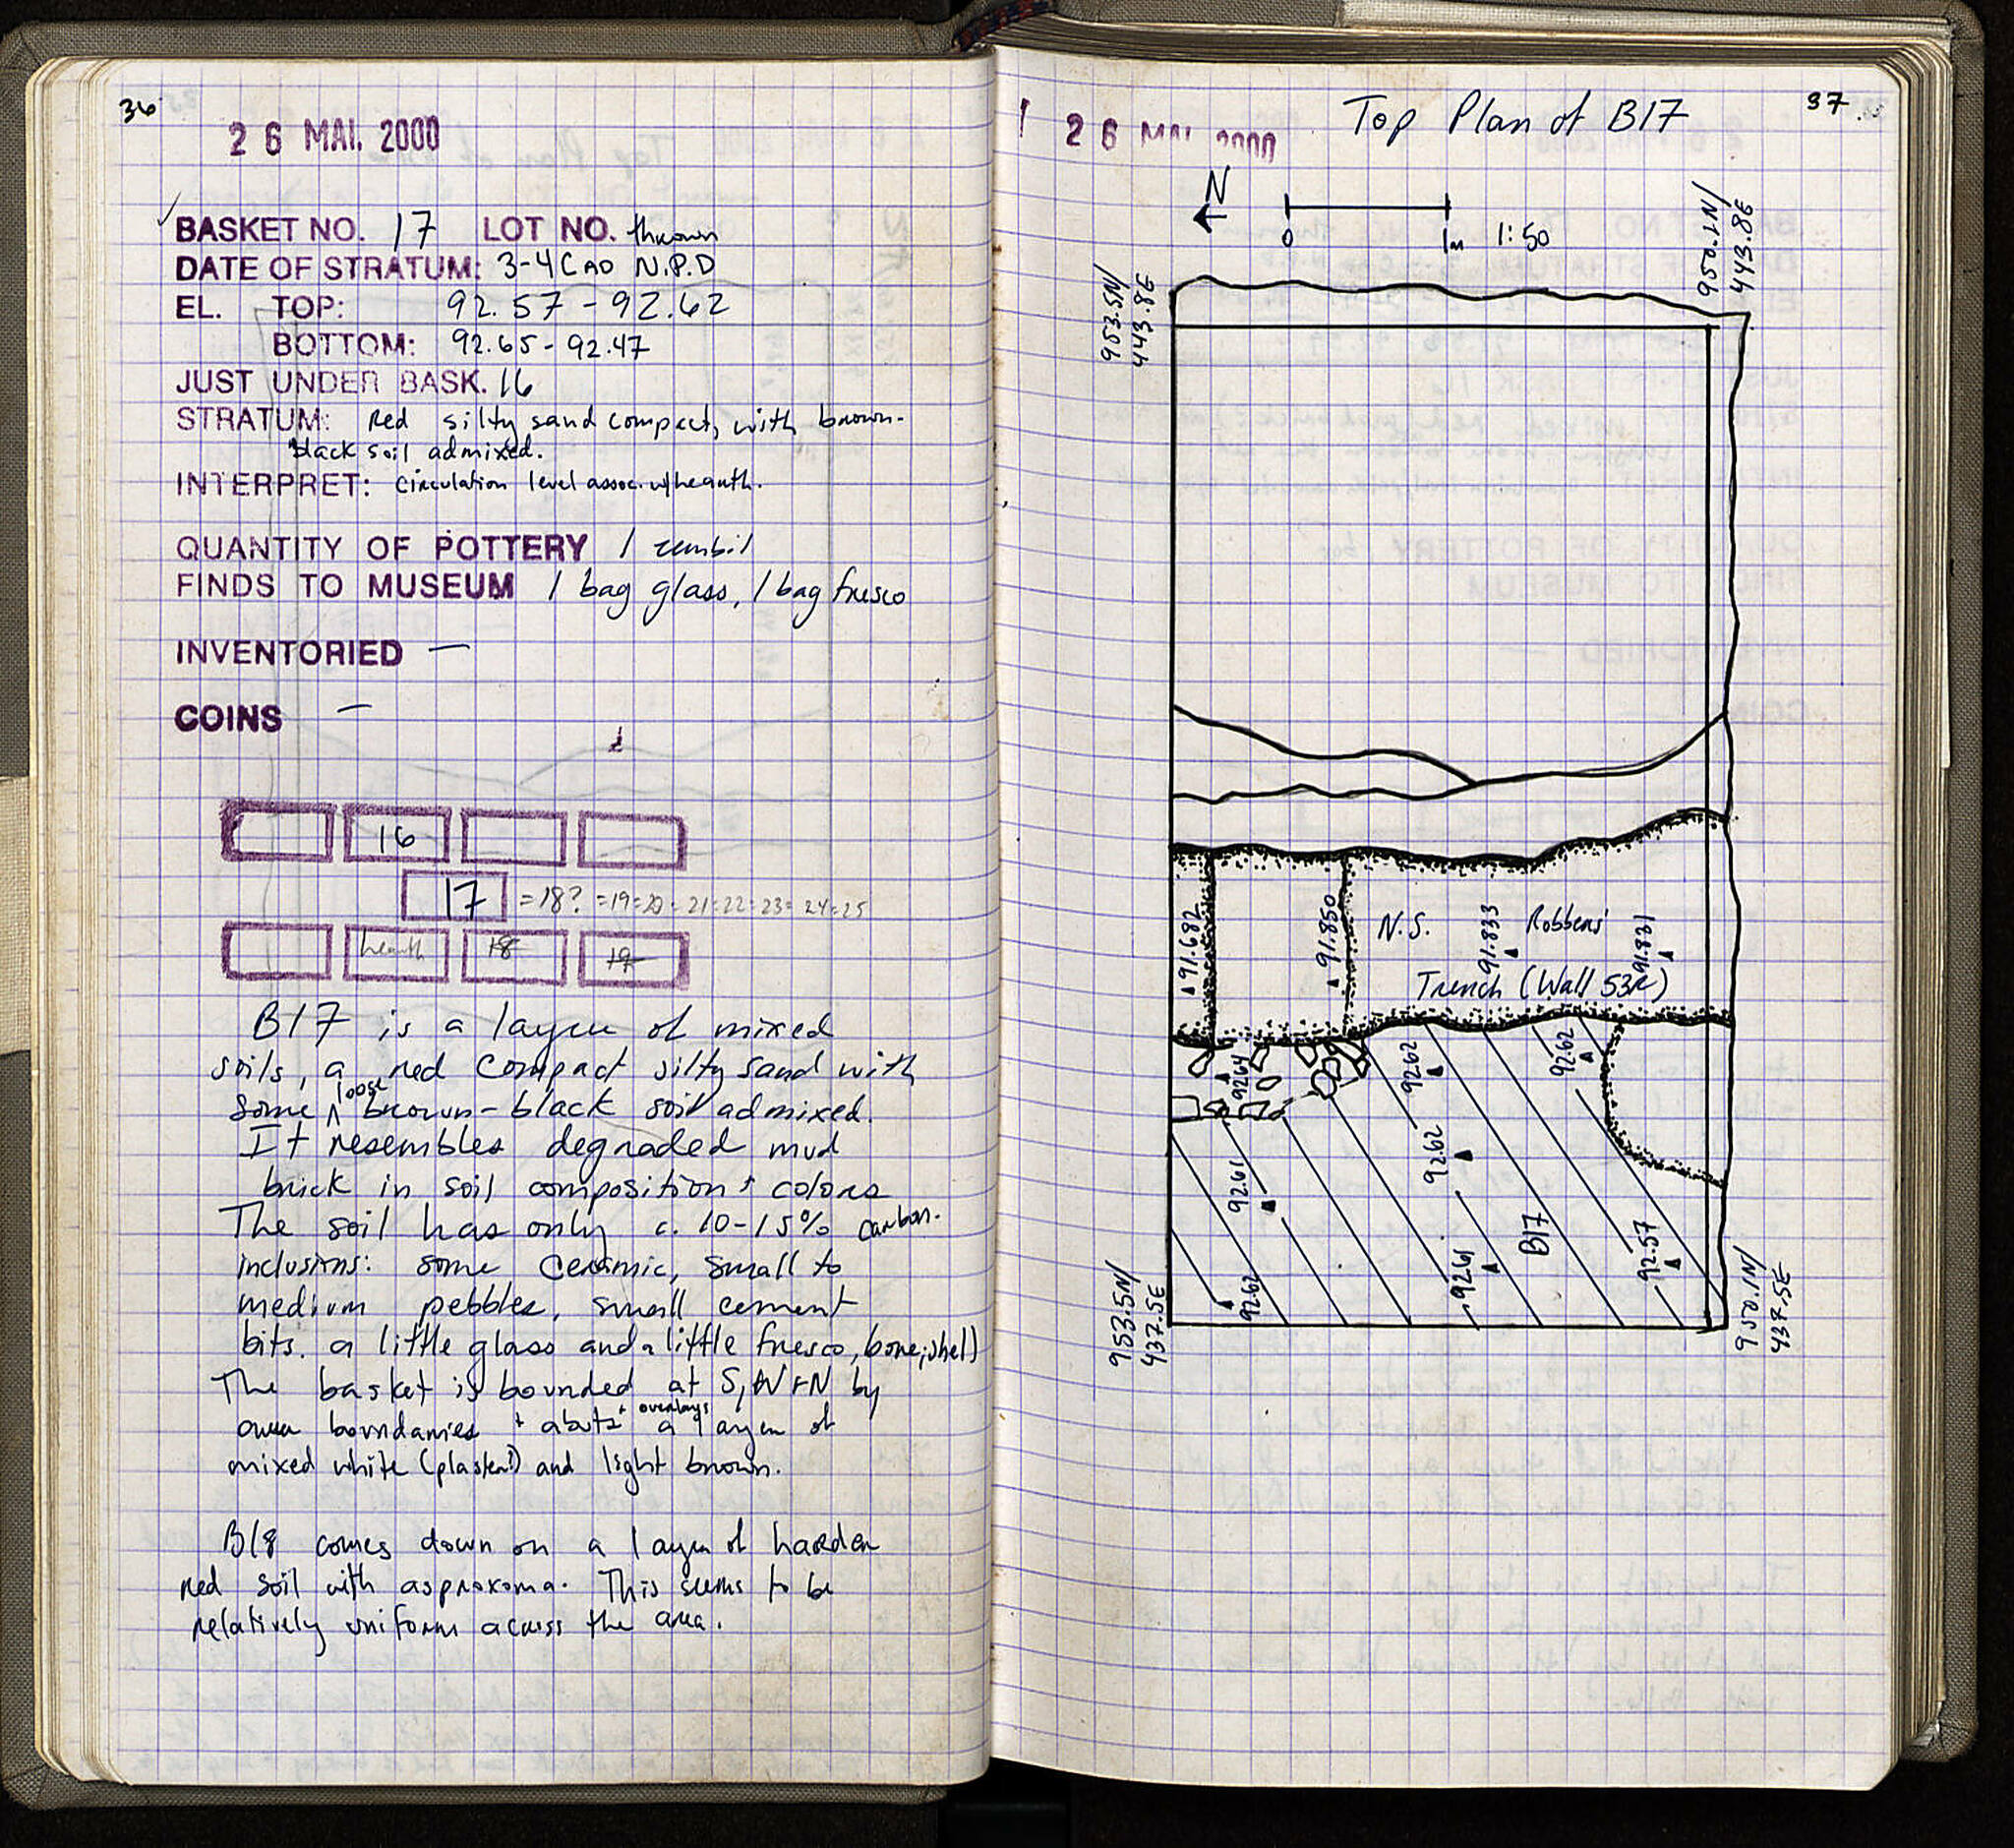 36
26 MAI. 2000
BASKET NO. 17 LOT NO. thrown
DATE OF STRATUM: 3-4 C AD N.P.D
EL. TOP: 92.57 - 92.62
BOTTOM: 92.65 - 92.47
JUST UNDER BASK. 16
STRATUM: Red silty sand compact, with brown-
black soil admixed.
INTERPRET: circulation level assoc. w/hearth.
QUANTITY OF POTTERY 1 zembil
FINDS TO MUSEUM 1 bag glass, 1 bag fresco
INVENTORIED —
COINS —
16
17 =18? =19=20=21=22=23=24=25
hearth 18 19
B17 is a layer of mixed
soils, a red compact silty sand with
some loose brown-black soil admixed.
It resembles degraded mud
brick in soil composition + colors
The soil has only c. 10-15% carbon.
inclusions: some ceramic, small to
medium pebbles, small cement
bits, a little glass and a little fresco, bone, shell
The basket is bounded at S, W + N by
area boundaries + abuts + overlays a layer of
mixed white (plaster?) and light brown.
B18 comes down on a layer of harder
red soil with asproxoma. This seems to be
relatively uniform across the area.
37
26 MAI 2000 Top Plan of B17
N
0 1m 1:50
953.5N/
443.8E
950.1N/
443.8E
91.682
91.850
N.S. 91.833 Robbers' 91.831
Trench (Wall 53R)
92.64
92.62
92.62
92.62
92.61
92.62
92.61
B17
92.57
953.5N/
437.5E
950.1N/
437.5E